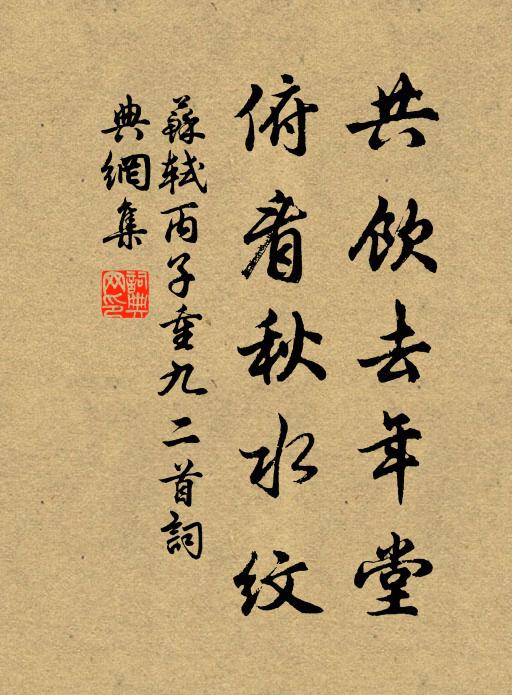 共飲去年堂
俯看秋水紋
蘇軾丙子重九二首詞
典網集
詞典網印